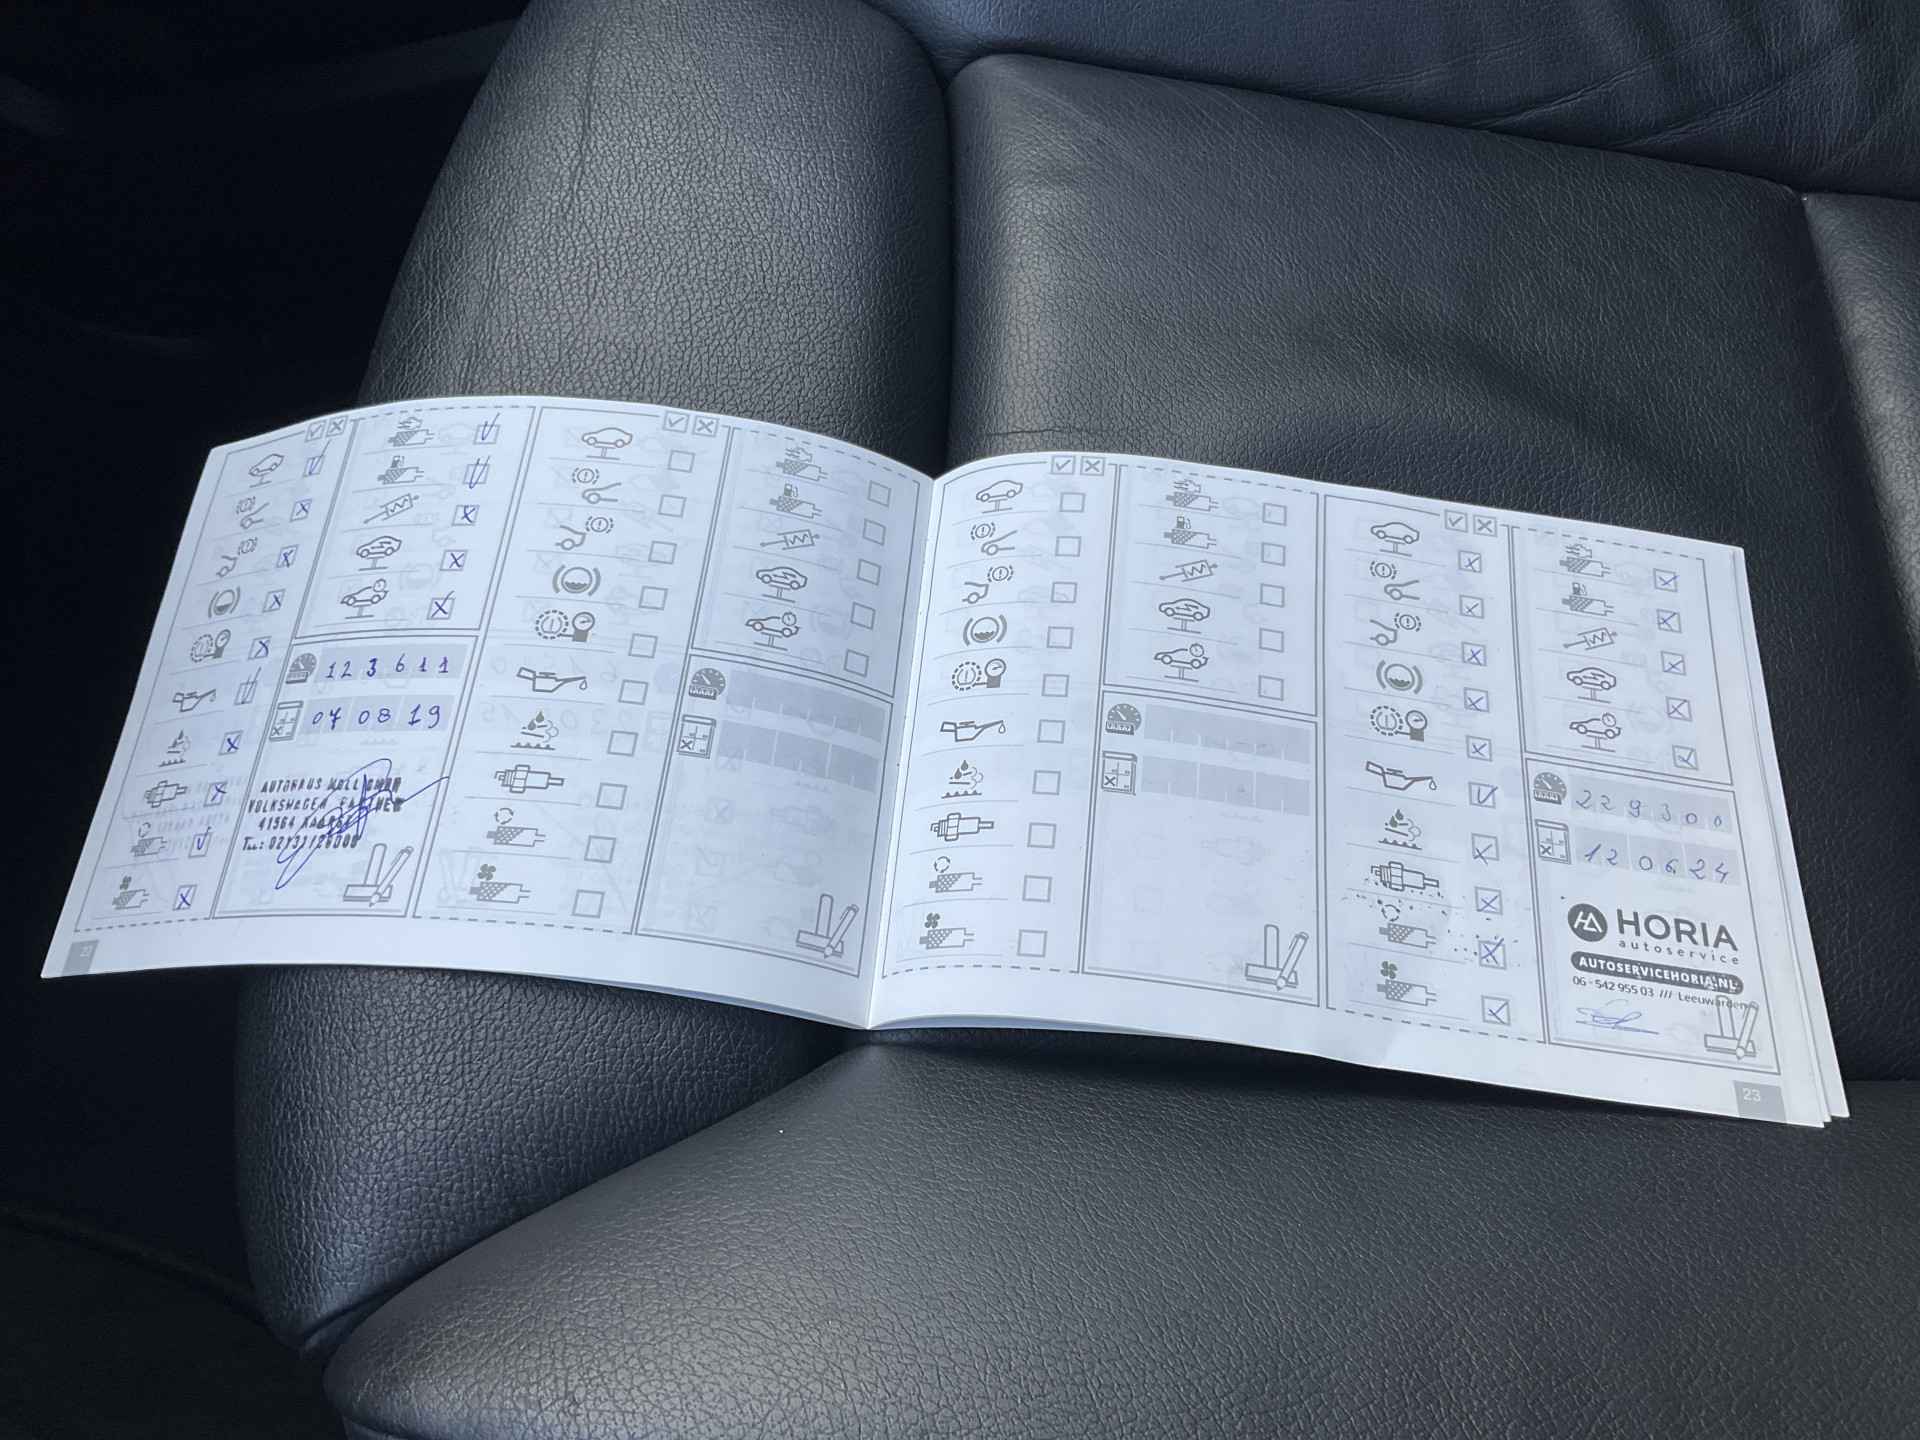 123611
07 08 19
AUTOHAUS MOLL GMBH
VOLKSWAGEN PARTNER
41564 KAARST
Tel.: 02131/26000
229300
12 06 24
HA HORIA
autoservice
AUTOSERVICEHORIA.NL
06 - 542 955 03 /// Leeuwarden
23